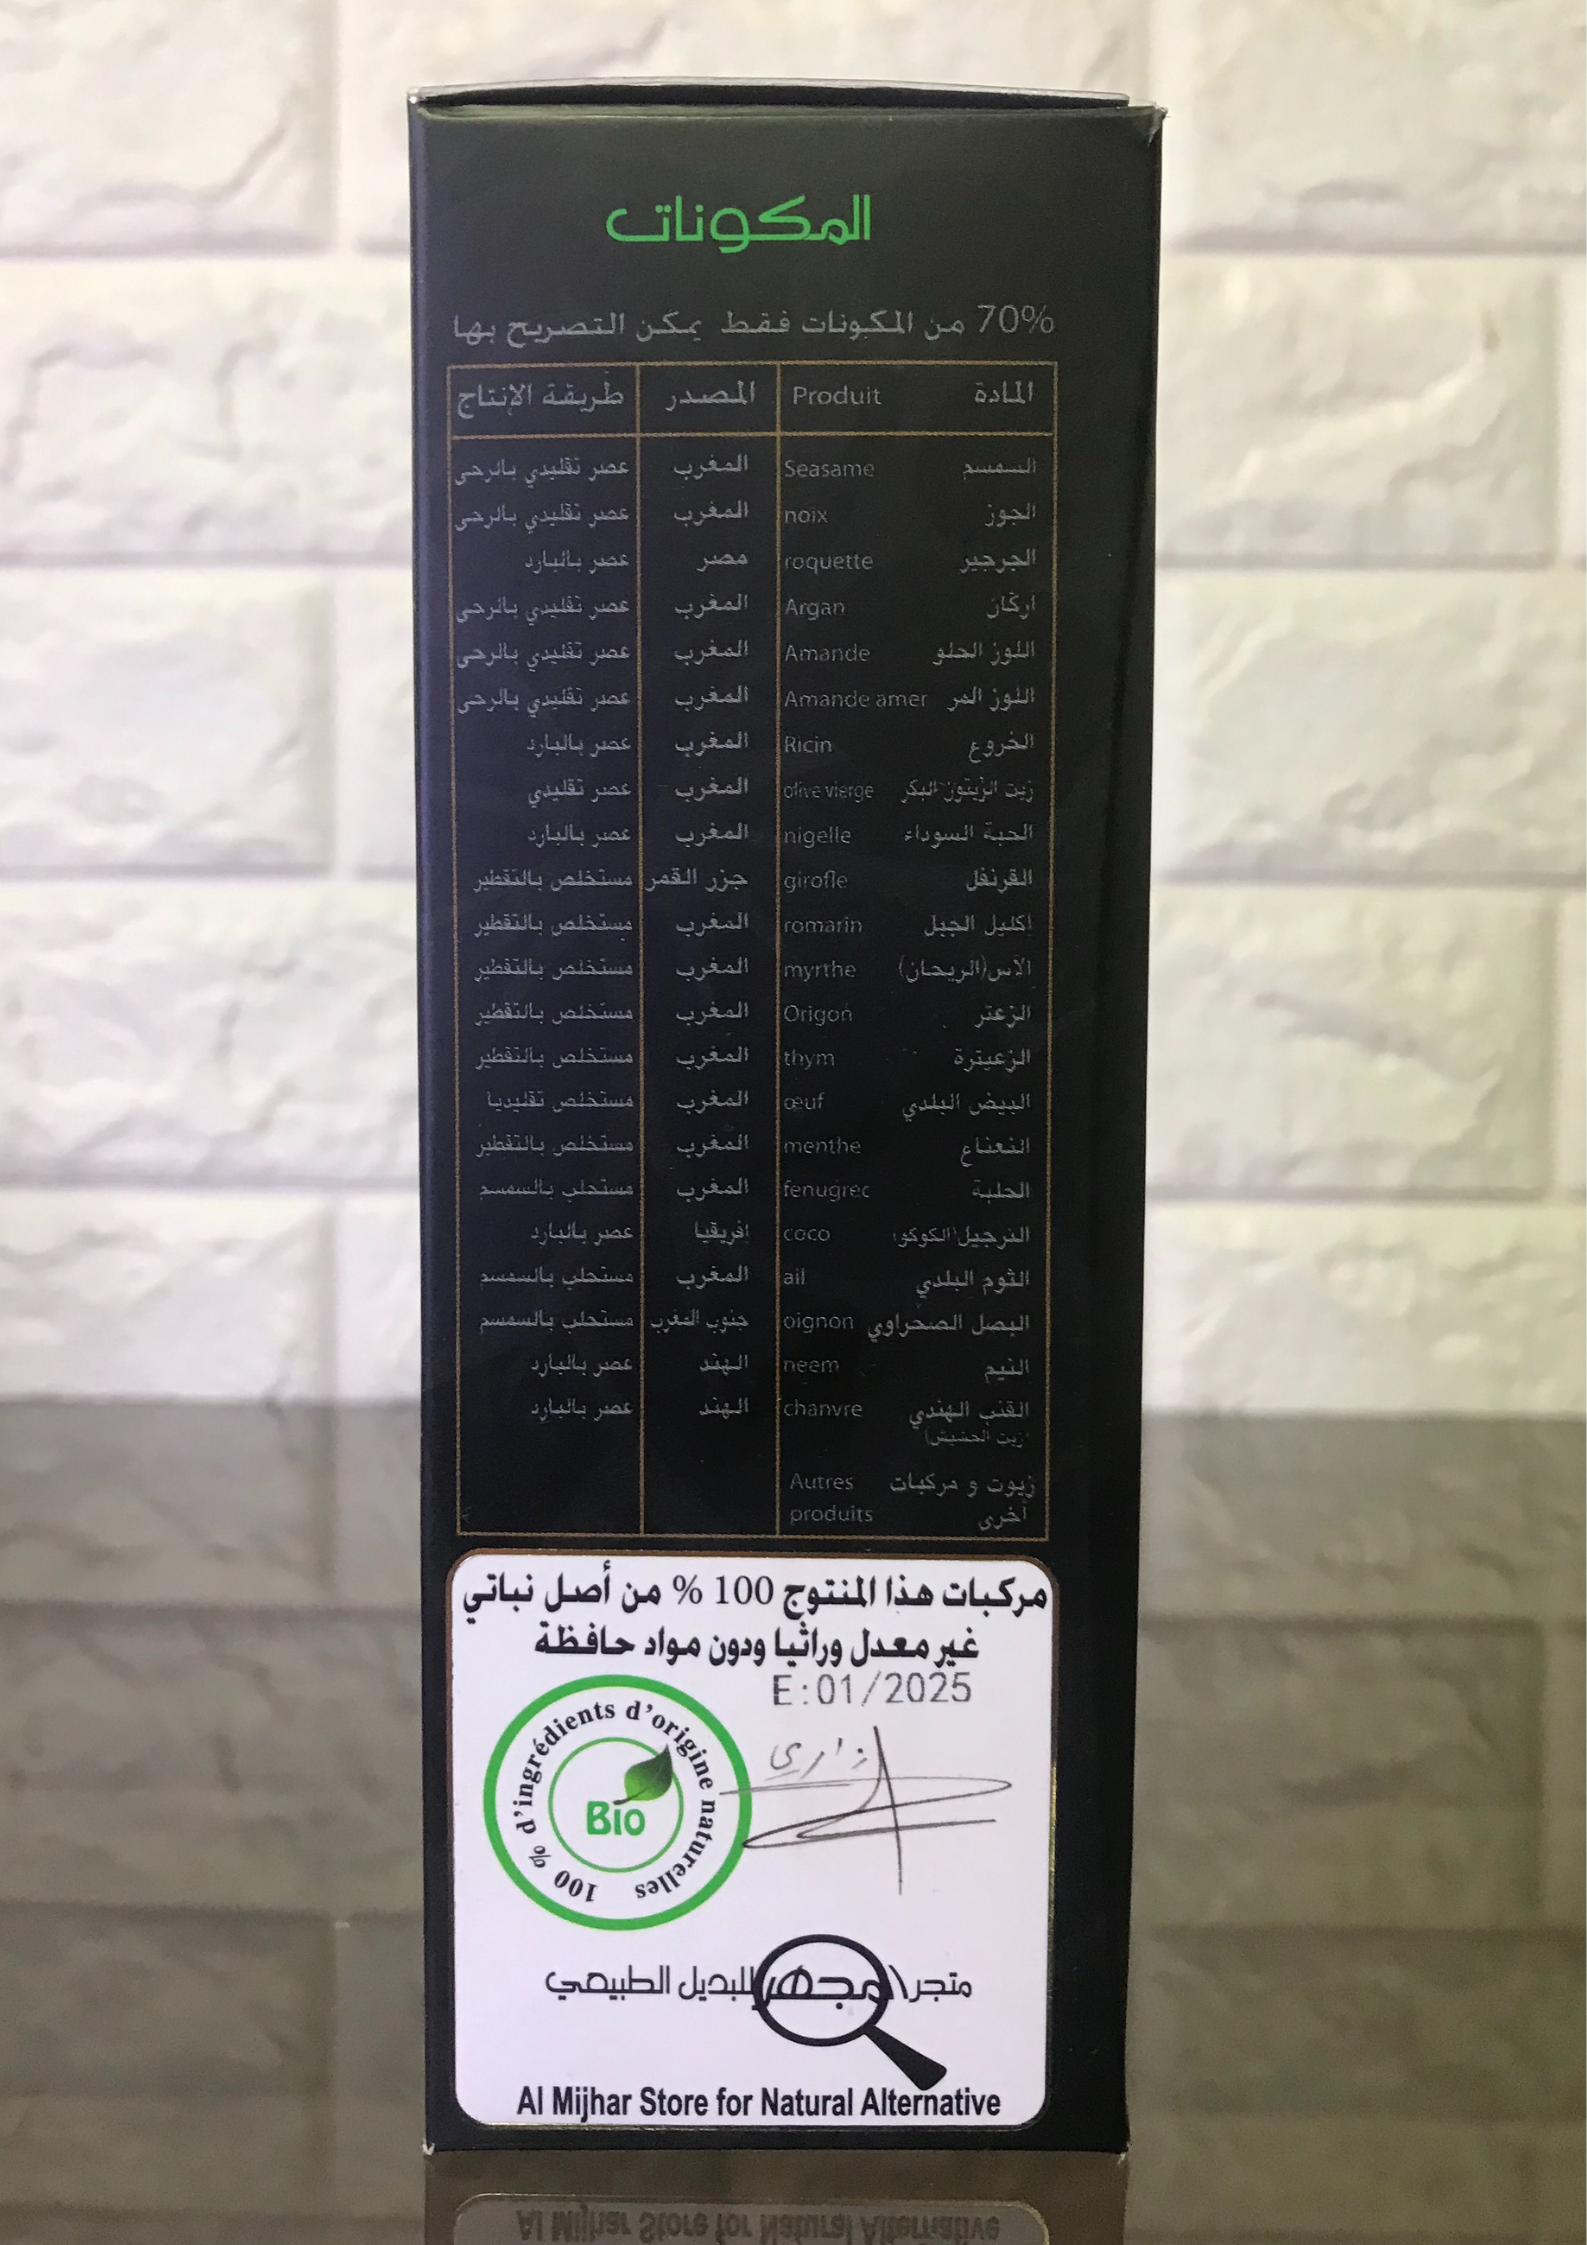 المكونات
70% من المكونات فقط يمكن التصريح بها
المادة Produit المصدر طريقة الإنتاج
السمسم Seasame المغرب عصر تقليدي بالرحى
الجوز noix المغرب عصر تقليدي بالرحى
الجرجير roquette مصر عصر بالبارد
اركان Argan المغرب عصر تقليدي بالرحى
اللوز الحلو Amande المغرب عصر تقليدي بالرحى
اللوز المر Amande amer المغرب عصر تقليدي بالرحى
الخروع Ricin المغرب عصر بالبارد
زيت الزيتون البكر olive vierge المغرب عصر تقليدي
الحبة السوداء nigelle المغرب عصر بالبارد
القرنفل girofle جزر القمر مستخلص بالتقطير
إكليل الجبل romarin المغرب مستخلص بالتقطير
الآس(الريحان) myrthe المغرب مستخلص بالتقطير
الزعتر Origon المغرب مستخلص بالتقطير
الزعيترة thym المغرب مستخلص بالتقطير
البيض البلدي œuf المغرب مستخلص تقليديا
النعناع menthe المغرب مستخلص بالتقطير
الحلبة fenugrec المغرب مستحلب بالسمسم
النرجيل(الكوكو) coco إفريقيا عصر بالبارد
الثوم البلدي ail المغرب مستحلب بالسمسم
البصل الصحراوي oignon جنوب المغرب مستحلب بالسمسم
النيم neem الهند عصر بالبارد
القنب الهندي chanvre الهند عصر بالبارد
(زيت الحشيش)
زيوت و مركبات Autres
أخرى produits
مركبات هذا المنتوج 100 % من أصل نباتي
غير معدل وراثيا ودون مواد حافظة
E:01/2025
100 % d'ingrédients d'origine naturelles
Bio
متجر المجهر للبديل الطبيعي
Al Mijhar Store for Natural Alternative